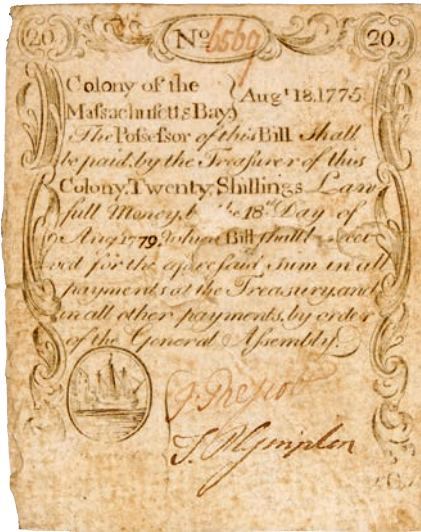 20 No 6569 20
Colony of the
Massachusetts Bay } Augt 18, 1775
The Possessor of this Bill shall
be paid, by the Treasurer of this
Colony, Twenty Shillings Law-
full Money, b the 18th Day of
Aug 1779, which Bill shall be recei
ved for the aforesaid sum in all
payments at the Treasury, and
in all other payments, by order
of the General Assembly.